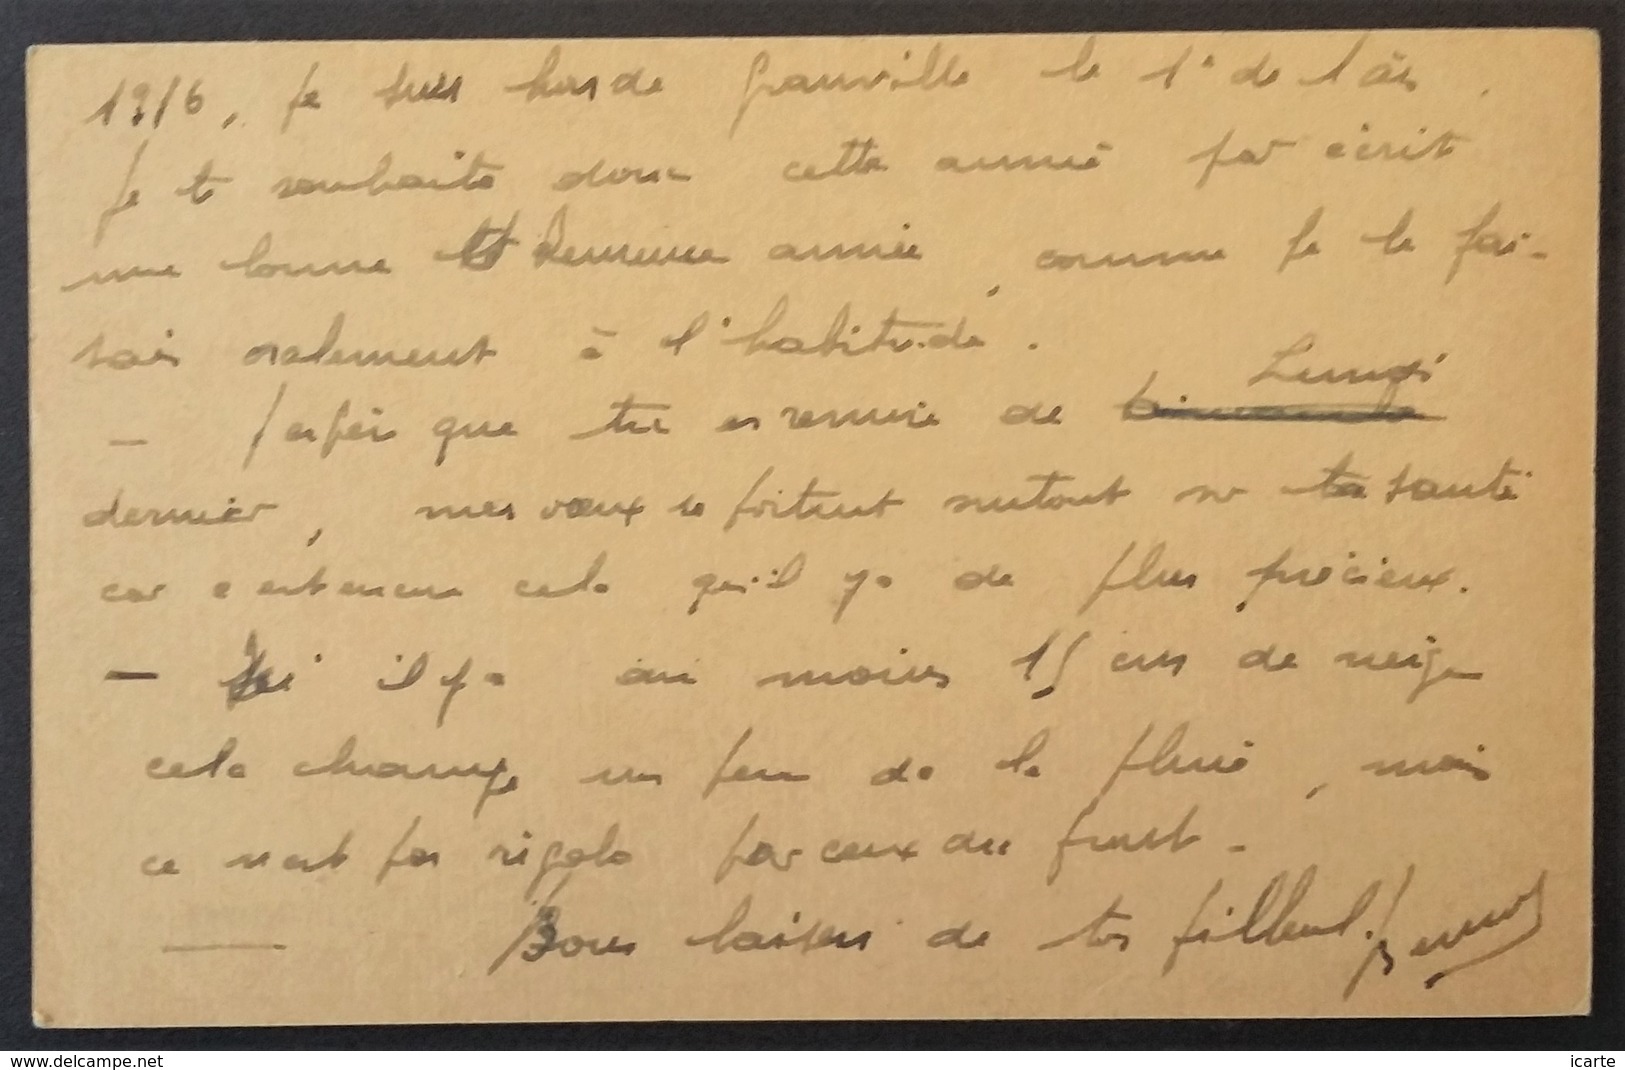 1916, je suis hors de Granville le 1er de l'an.
Je te souhaite donc cette année par écrit
une bonne et heureuse année, comme je le fai-
sais oralement à l'habitude.
Lundi
- J'espère que tu es remise de dimanche
dernier, mes vœux se portent surtout sur ta santé
car c'est encore cela qu'il y a de plus précieux.
- Ici il y a au moins 15 cm de neige
cela change un peu de la pluie, mais
ce n'est pas rigolo par ceux du front.
Bons baisers de ton filleul.
delcampe.net
icarte